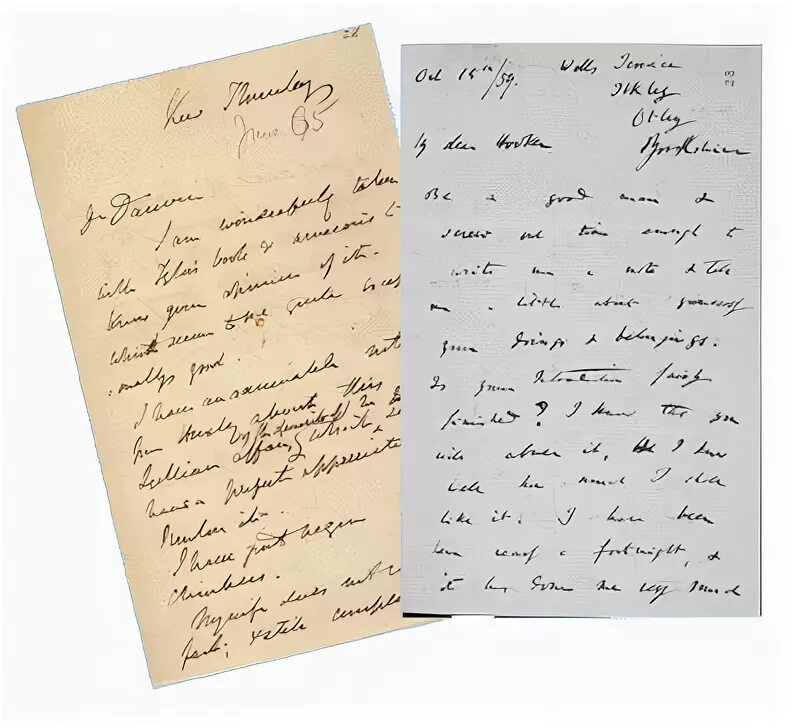 Kew Thursday
June 65
Dr Darwin
I am wonderfully taken
with Tylor's book & anxious to
know your opinion of it.
which seems to me quite excep
tionally good.
I have an
from Huxley about this
affair, which
have a perfect
I have just begun
climbers.
My wife does not
Oct 15th/59. Wells Terrace
Ilkley
Otley
Yorkshire
My dear Hooker
Be a good man &
screw out time enough to
write me a note & tell
me a little about yourself
your doings & belongings.
Is your Introduction fairly
finished? I know that you
will abuse it, & I know
well how much I shall
like it. I have been
here near a fortnight, &
it has done me very much